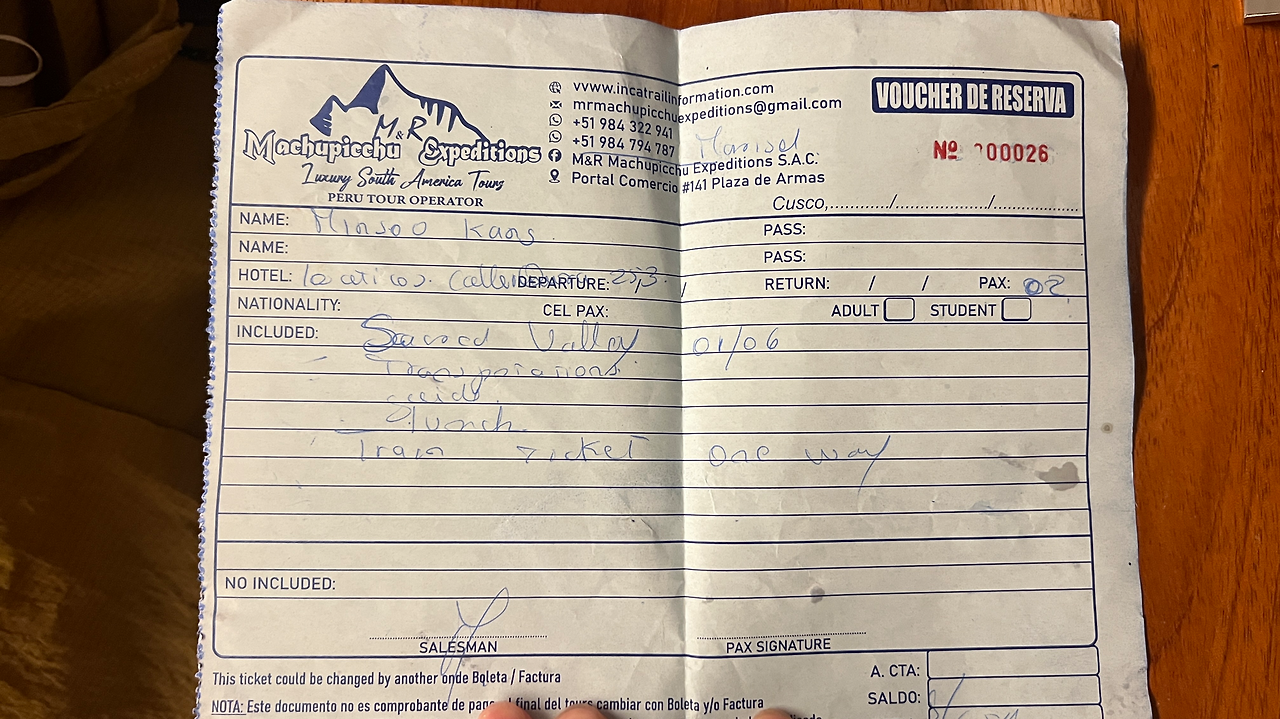 M&R
Machupicchu Expeditions
Luxury South America Tours
PERU TOUR OPERATOR
www.incatrailinformation.com
mrmachupicchuexpeditions@gmail.com
+51 984 322 941
+51 984 794 787 Marisol
M&R Machupicchu Expeditions S.A.C.
Portal Comercio #141 Plaza de Armas
VOUCHER DE RESERVA
Nº 000026
Cusco,............/................../..................
NAME: Minsoo Kang
PASS:
NAME:
PASS:
HOTEL: DEPARTURE: 253 / RETURN: / / PAX: 02
NATIONALITY: CEL PAX: ADULT STUDENT
INCLUDED: Sacred Valley 01/06
Lunch
Train Ticket one way
NO INCLUDED:
SALESMAN
PAX SIGNATURE
This ticket could be changed by another onde Boleta / Factura
A. CTA:
NOTA: Este documento no es comprobante de pago al final del tours cambiar con Boleta y/o Factura
SALDO: